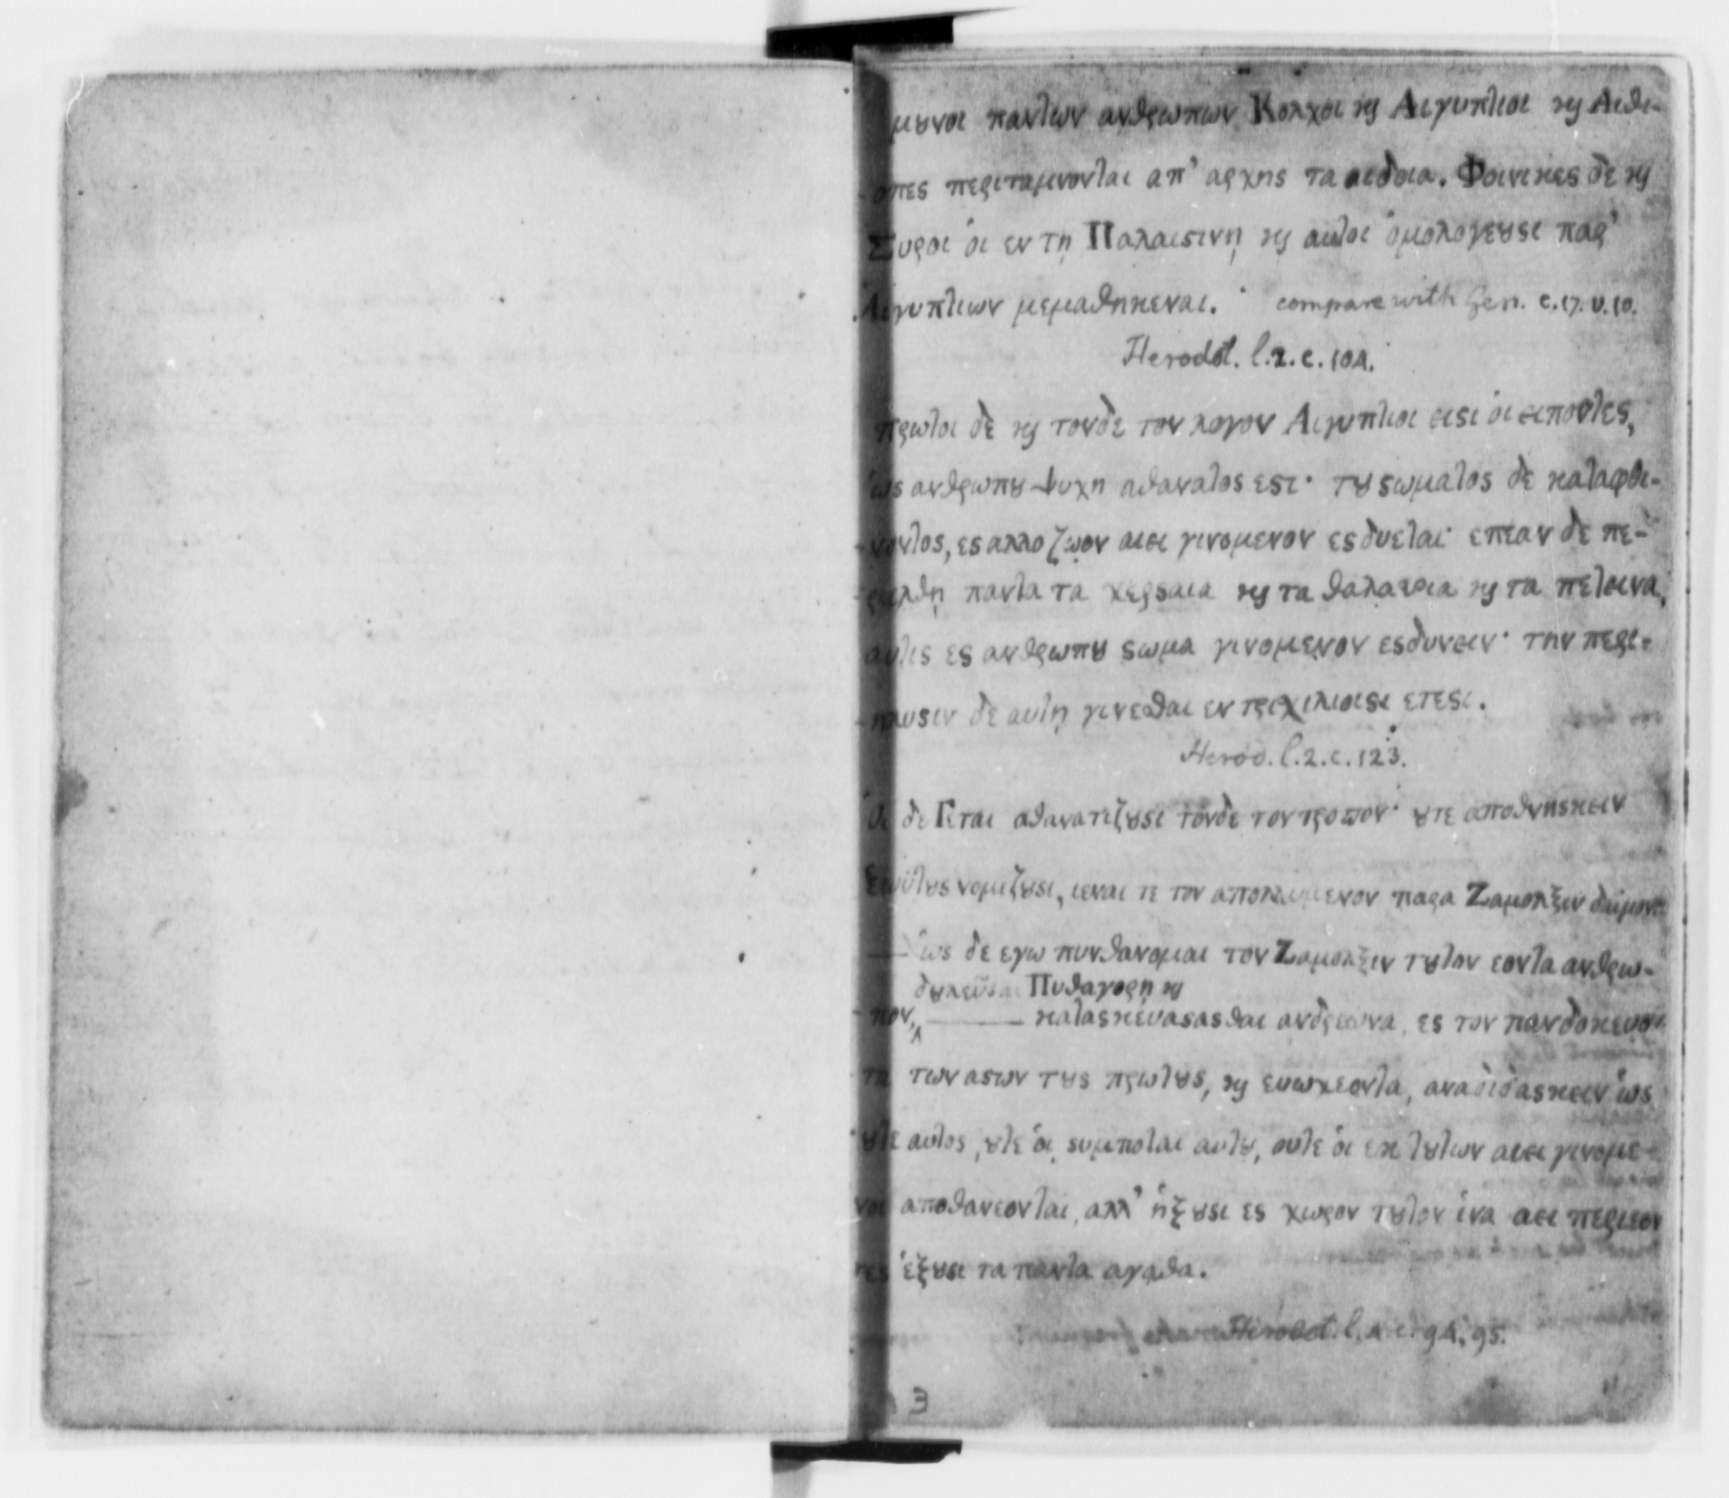 μȣνοι παντων ανθρωπων Κολχοι ϗ Αιγυπτιοι ϗ Αιθι-
οπες περιταμνονται απ’ αρχης τα αιδοια. Φοινικες δε ϗ
Συροι ὁι εν τη Παλαιςινῃ ϗ αυτοι ὁμολογεȣσι παρ’
Αιγυπτιων μεμαθηκεναι. compare with Gen. c.17. v.10.
Herodot. l.2. c.104.
πρωτοι δε ϗ τονδε τον λογον Αιγυπτιοι εισι ὁι ειποντες,
ὡς ανθρωπȣ ψυχη αθανατος εςι· τȣ σωματος δε καταφθι-
νοντος, ες αλλο ζῳον αιει γινομενον εσδυεται· επεαν δε πε-
ριελθῃ παντα τα χερσαια ϗ τα θαλασσια ϗ τα πετεινα,
αυτις ες ανθρωπȣ σωμα γινομενον εσδυνειν· την περι-
ηλυσιν δε αυτῃ γινεσθαι εν τριχιλιοισι ετεσι.
Herod. l.2. c.123.
Ὁι δε Γεται αθανατιζȣσι τονδε τον τροπον· ȣτε αποθνησκειν
ἑωϋτȣς νομιζȣσι, ιεναι τε τον απολλυμενον παρα Ζαμολξιν δαιμονα
— ὡς δε εγω πυνθανομαι τον Ζαμολξιν τȣτον εοντα ανθρω-
δȣλεῦσαι Πυθαγορῃ ϗ
πον, ^ ——— κατασκευασασθαι ανδρεωνα, ες τον πανδοκευον-
τα των αςων τȣς πρωτȣς, ϗ ευωχεοντα, αναδιδασκειν ὡς
ȣτε αυτος, ȣτε ὁι συμποται αυτȣ, ουτε ὁι εκ τȣτων αιει γινομε-
νοι αποθανεονται, αλλ’ ἡξȣσι ες χωρον τȣτον ἱνα αει περιεον
τες ἑξȣσι τα παντα αγαθα.
Herodot. l.4. c. 94. 95.
3